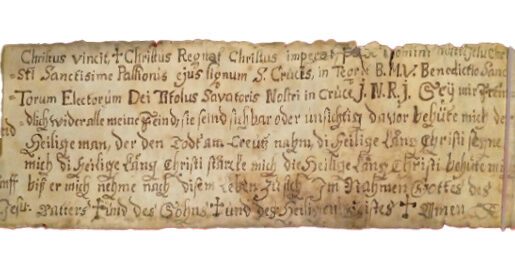 Christus vincit, ✝ Christus Regnat Christus imperat, pax Domini
-sti Sanctisime Passionis ejus lignum S. Crucis, in Tegrit B.M.V. Benedictio Sanc
-Torum Electorum Dei Titolus Savatoris Nostri in Cruce J. N. R. J. Seÿ mir
dlich wider alle meine Feind, sie seind sichbar oder unsichtig davor behüte mich der
Heilige man, der den Todt am Creutz nahm, di Heilige Läng Christi segne
mich di Heilige Läng Christi stärcke mich die Heilige Läng Christi behüte mi
biß er mich nehme nach disem Leben zu sich Im Nahmen Gottes des
Vatters ✝ und des Sohns ✝ und des Heiligen Geistes ✝ Amen